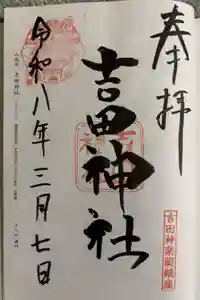 奉拝
吉田神社
令和八年三月七日
吉田神楽岡鎮座